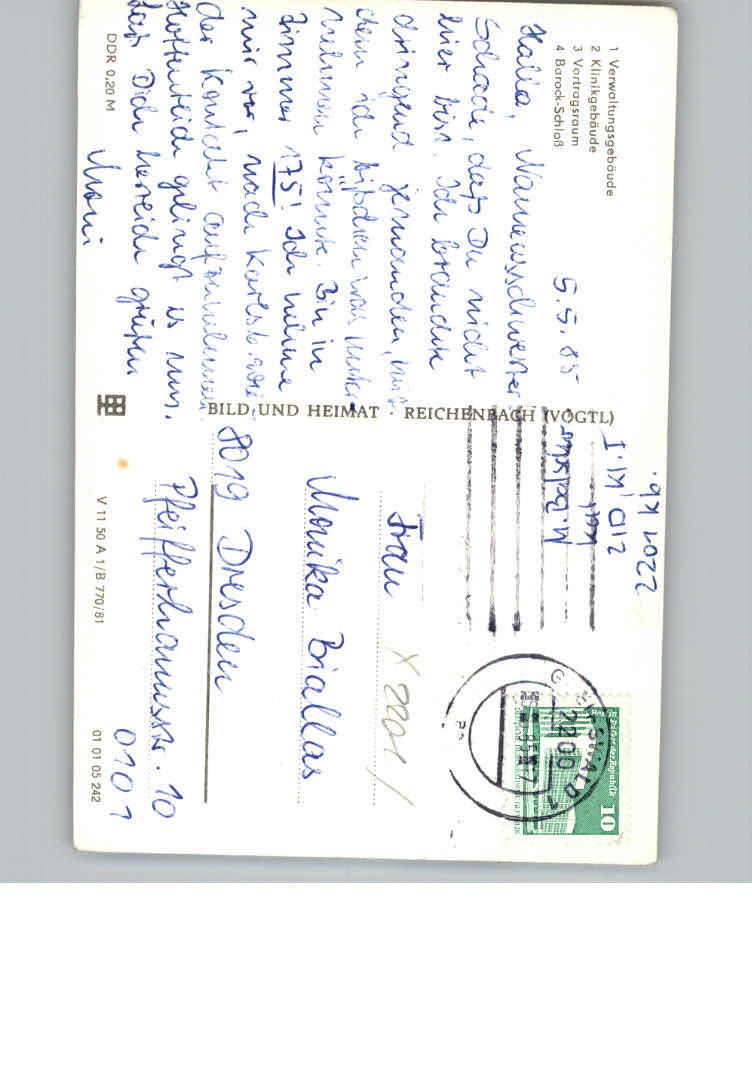 1 Verwaltungsgebäude
2 Klinikgebäude
3 Vortragsraum
4 Barock-Schloß
5.5.85
Hallo, Namensschwester
Schade, daß Du nicht
hier bist. Ich brauchte
dringend jemanden, mit
dem ich bißchen was unter-
nehmen könnte. Bin in
Zimmer 175! Ich nehme
mir vor, nach
der Kontakt aufzunehmen.
Hoffentlich gelingt es mir.
Laß Dich herzlich grüßen
Moni
DDR 0,20 M
BILD UND HEIMAT · REICHENBACH (VOGTL)
2201 Kb.
GREIFSWALD 1
2200
Berlin, Palast der Republik
10
Frau
Monika Biallas
8019 Dresden
Pfeifferhannsstr. 10
0101
V 11 50 A 1/B 770/81
01 01 05 242